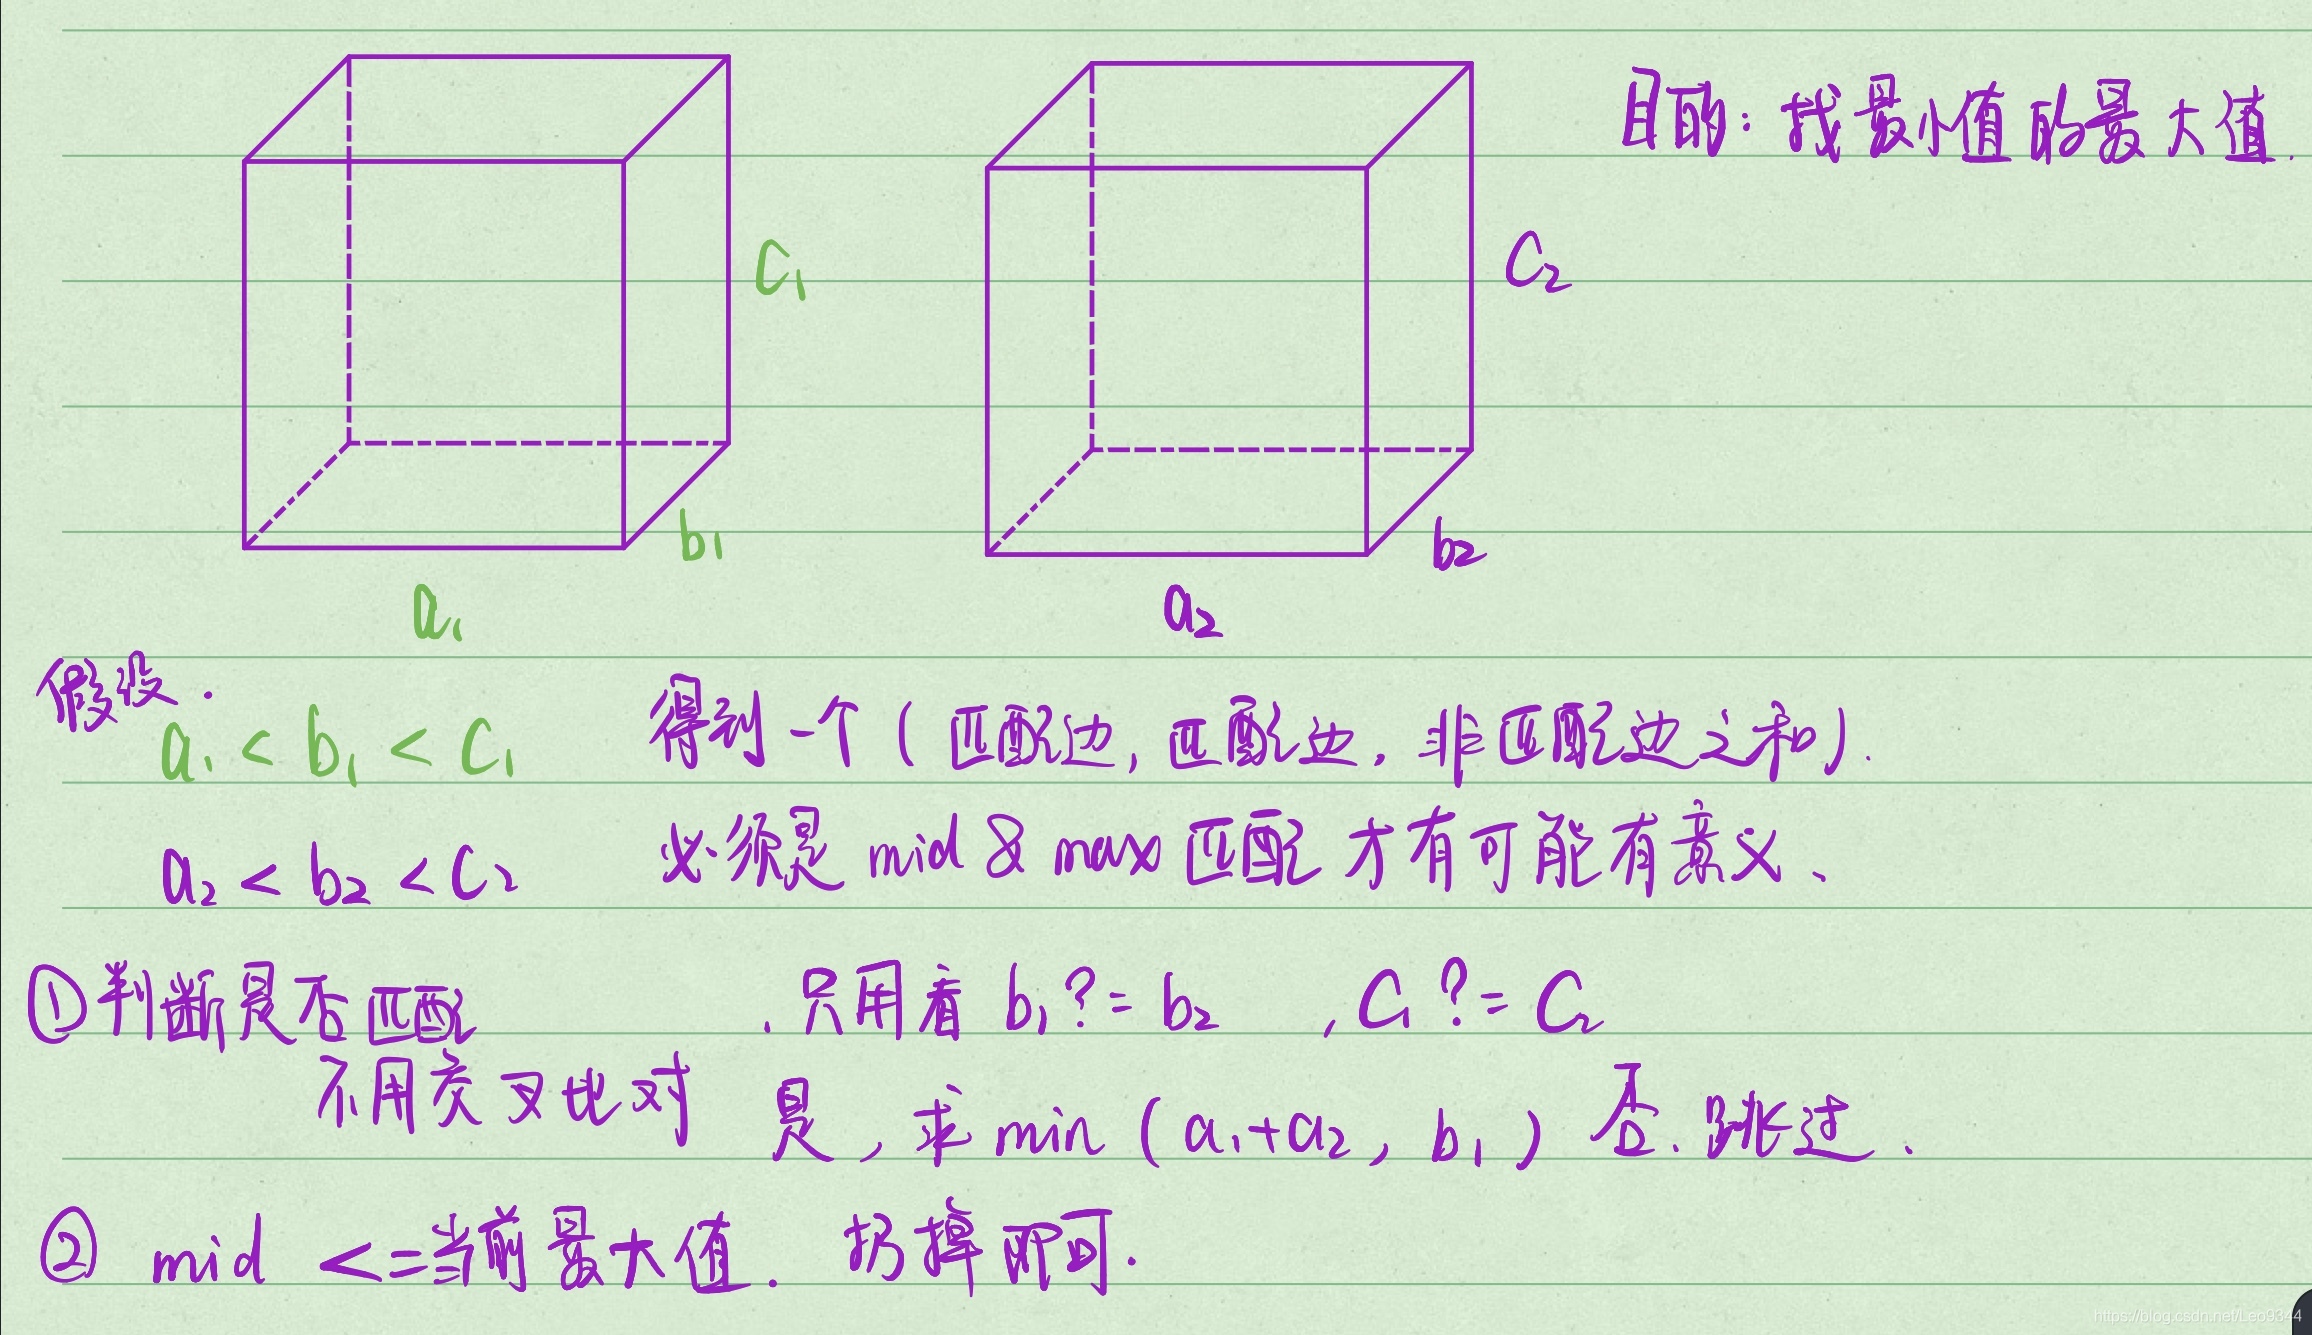 目的：找最小值的最大值.
C₁
C₂
b₁
b₂
a₁
a₂
假设：
a₁ < b₁ < C₁
得到一个（匹配边, 匹配边, 非匹配边之和）.
a₂ < b₂ < C₂
必须是 mid & max 匹配 才有可能有意义、
①判断是否匹配
.只用看 b₁ ?= b₂ , C₁ ?= C₂
不用交叉比对
是, 求 min (a₁+a₂, b₁) 否. 跳过.
② mid <=当前最大值. 扔掉即可.
https://blog.csdn.net/Leo9344